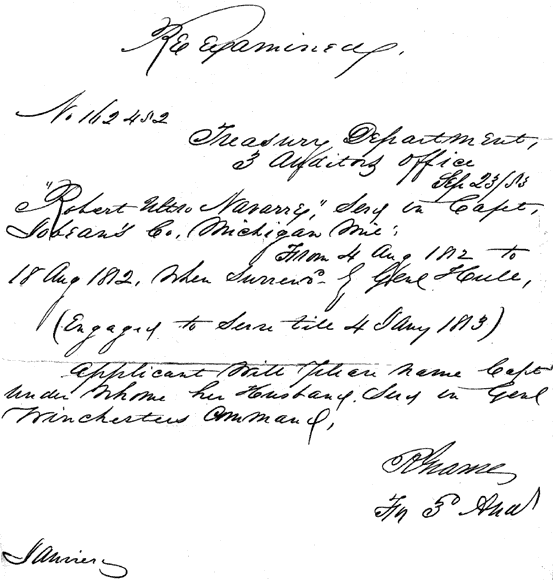 Re examined.
No 162482
Treasury Department,
3 Auditors Office
Sep 23/53
"Robert Navarre," Serg in Capt,
Co, Michigan Mil:
From 4 Aug 1812 to
18 Aug 1812, When Surrend by Genl Hull,
(Engaged to Serve till 4 Jany 1813)
Applicant Will Please name Capt
under Whome her Husband Serd in Genl
Winchesters Command,
For 3d Aud